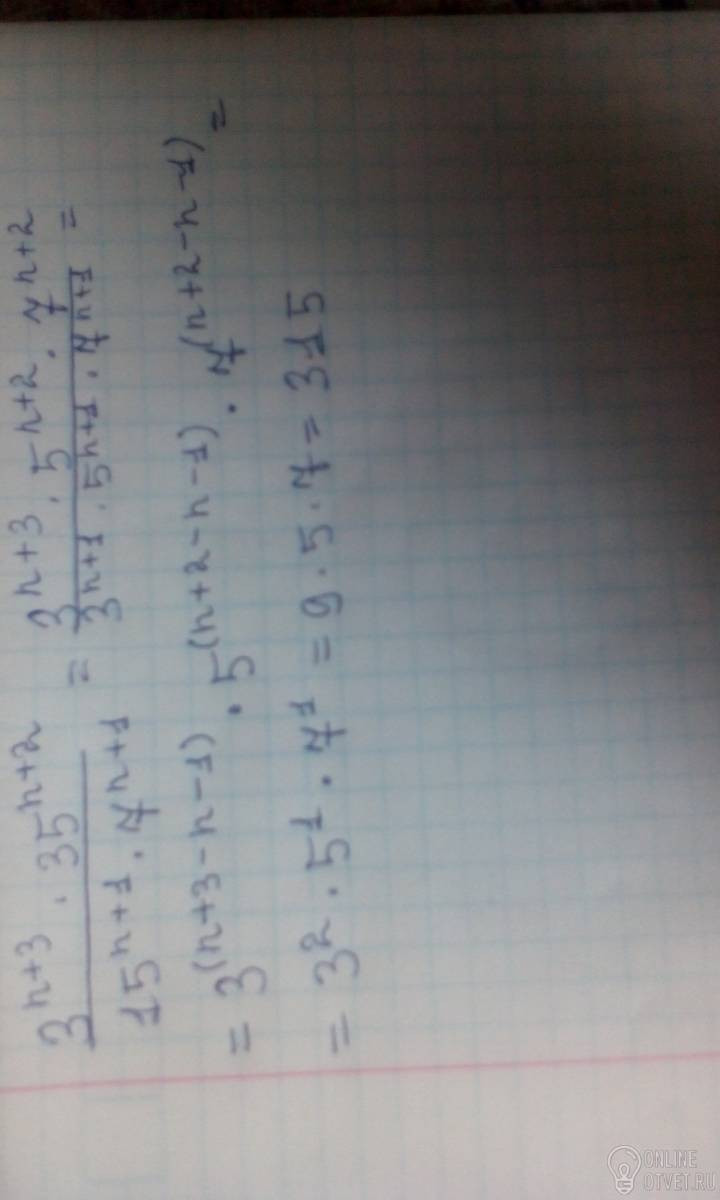 3^(n+3) · 35^(n+2) / 15^(n+1) · 7^(n+1) = 3^(n+3) · 5^(n+2) · 7^(n+2) / 3^(n+1) · 5^(n+1) · 7^(n+1) =
= 3^(n+3-n-1) · 5^(n+2-n-1) · 7^(n+2-n-1) =
= 3² · 5¹ · 7¹ = 9 · 5 · 7 = 315
ONLINE
OTVET.RU